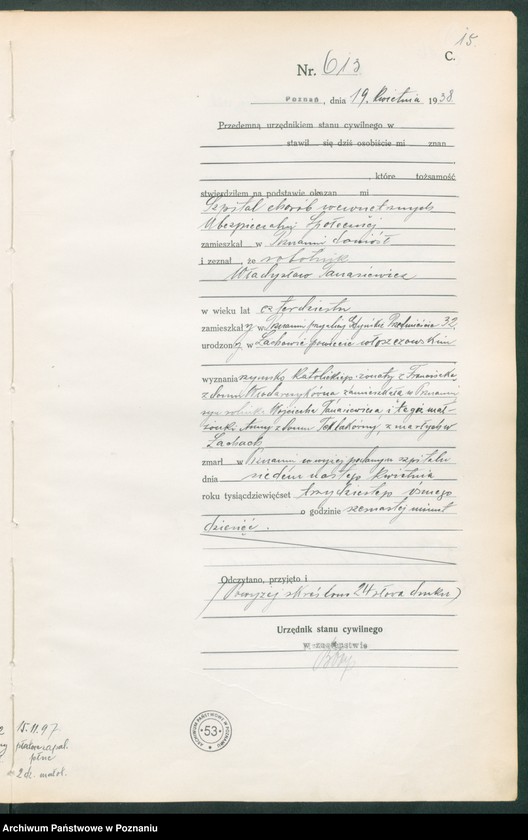 15
C.
Nr. 613
Poznań, dnia 19. kwietnia 1938.
Przedemną urzędnikiem stanu cywilnego w
stawił się dziś osobiście mi znan
, które tożsamość
stwierdziłem na podstawie okazan mi
Szpital chorób wewnętrznych
Ubezpieczalni Społecznej
zamieszkał w Poznaniu doniósł
i zeznał, że robotnik
Władysław Tarasiewicz
w wieku lat czterdziestu
zamieszkały w Poznaniu przy ulicy 32
urodzony w powiecie włoszczowskim
wyznania rzymsko katolickiego żonaty z Franciszką
z domu zamieszkałą w Poznaniu
syn Wojciecha Tarasiewicza i tegoż mał-
żonki Anny z domu zmarłych w
Lachach
zmarł w Poznaniu w wyżej podanym szpitalu
dnia siedemnastego kwietnia
roku tysiącdziewięćset trzydziestego ósmego
o godzinie szesnastej minut
dziesięć.
Odczytano, przyjęto i
(Powyżej skreślono 24 słowa druku)
Urzędnik stanu cywilnego
W zastępstwie
ARCHIWUM PAŃSTWOWE W POZNANIU
53
15.11.97
płuc
2 dz. małol.
Archiwum Państwowe w Poznaniu